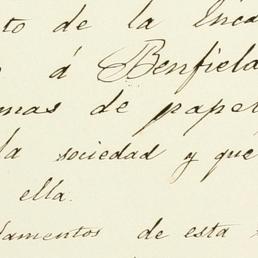 to de la
á Benfield
mas de papel
la sociedad y que
ella.
damentos de esta